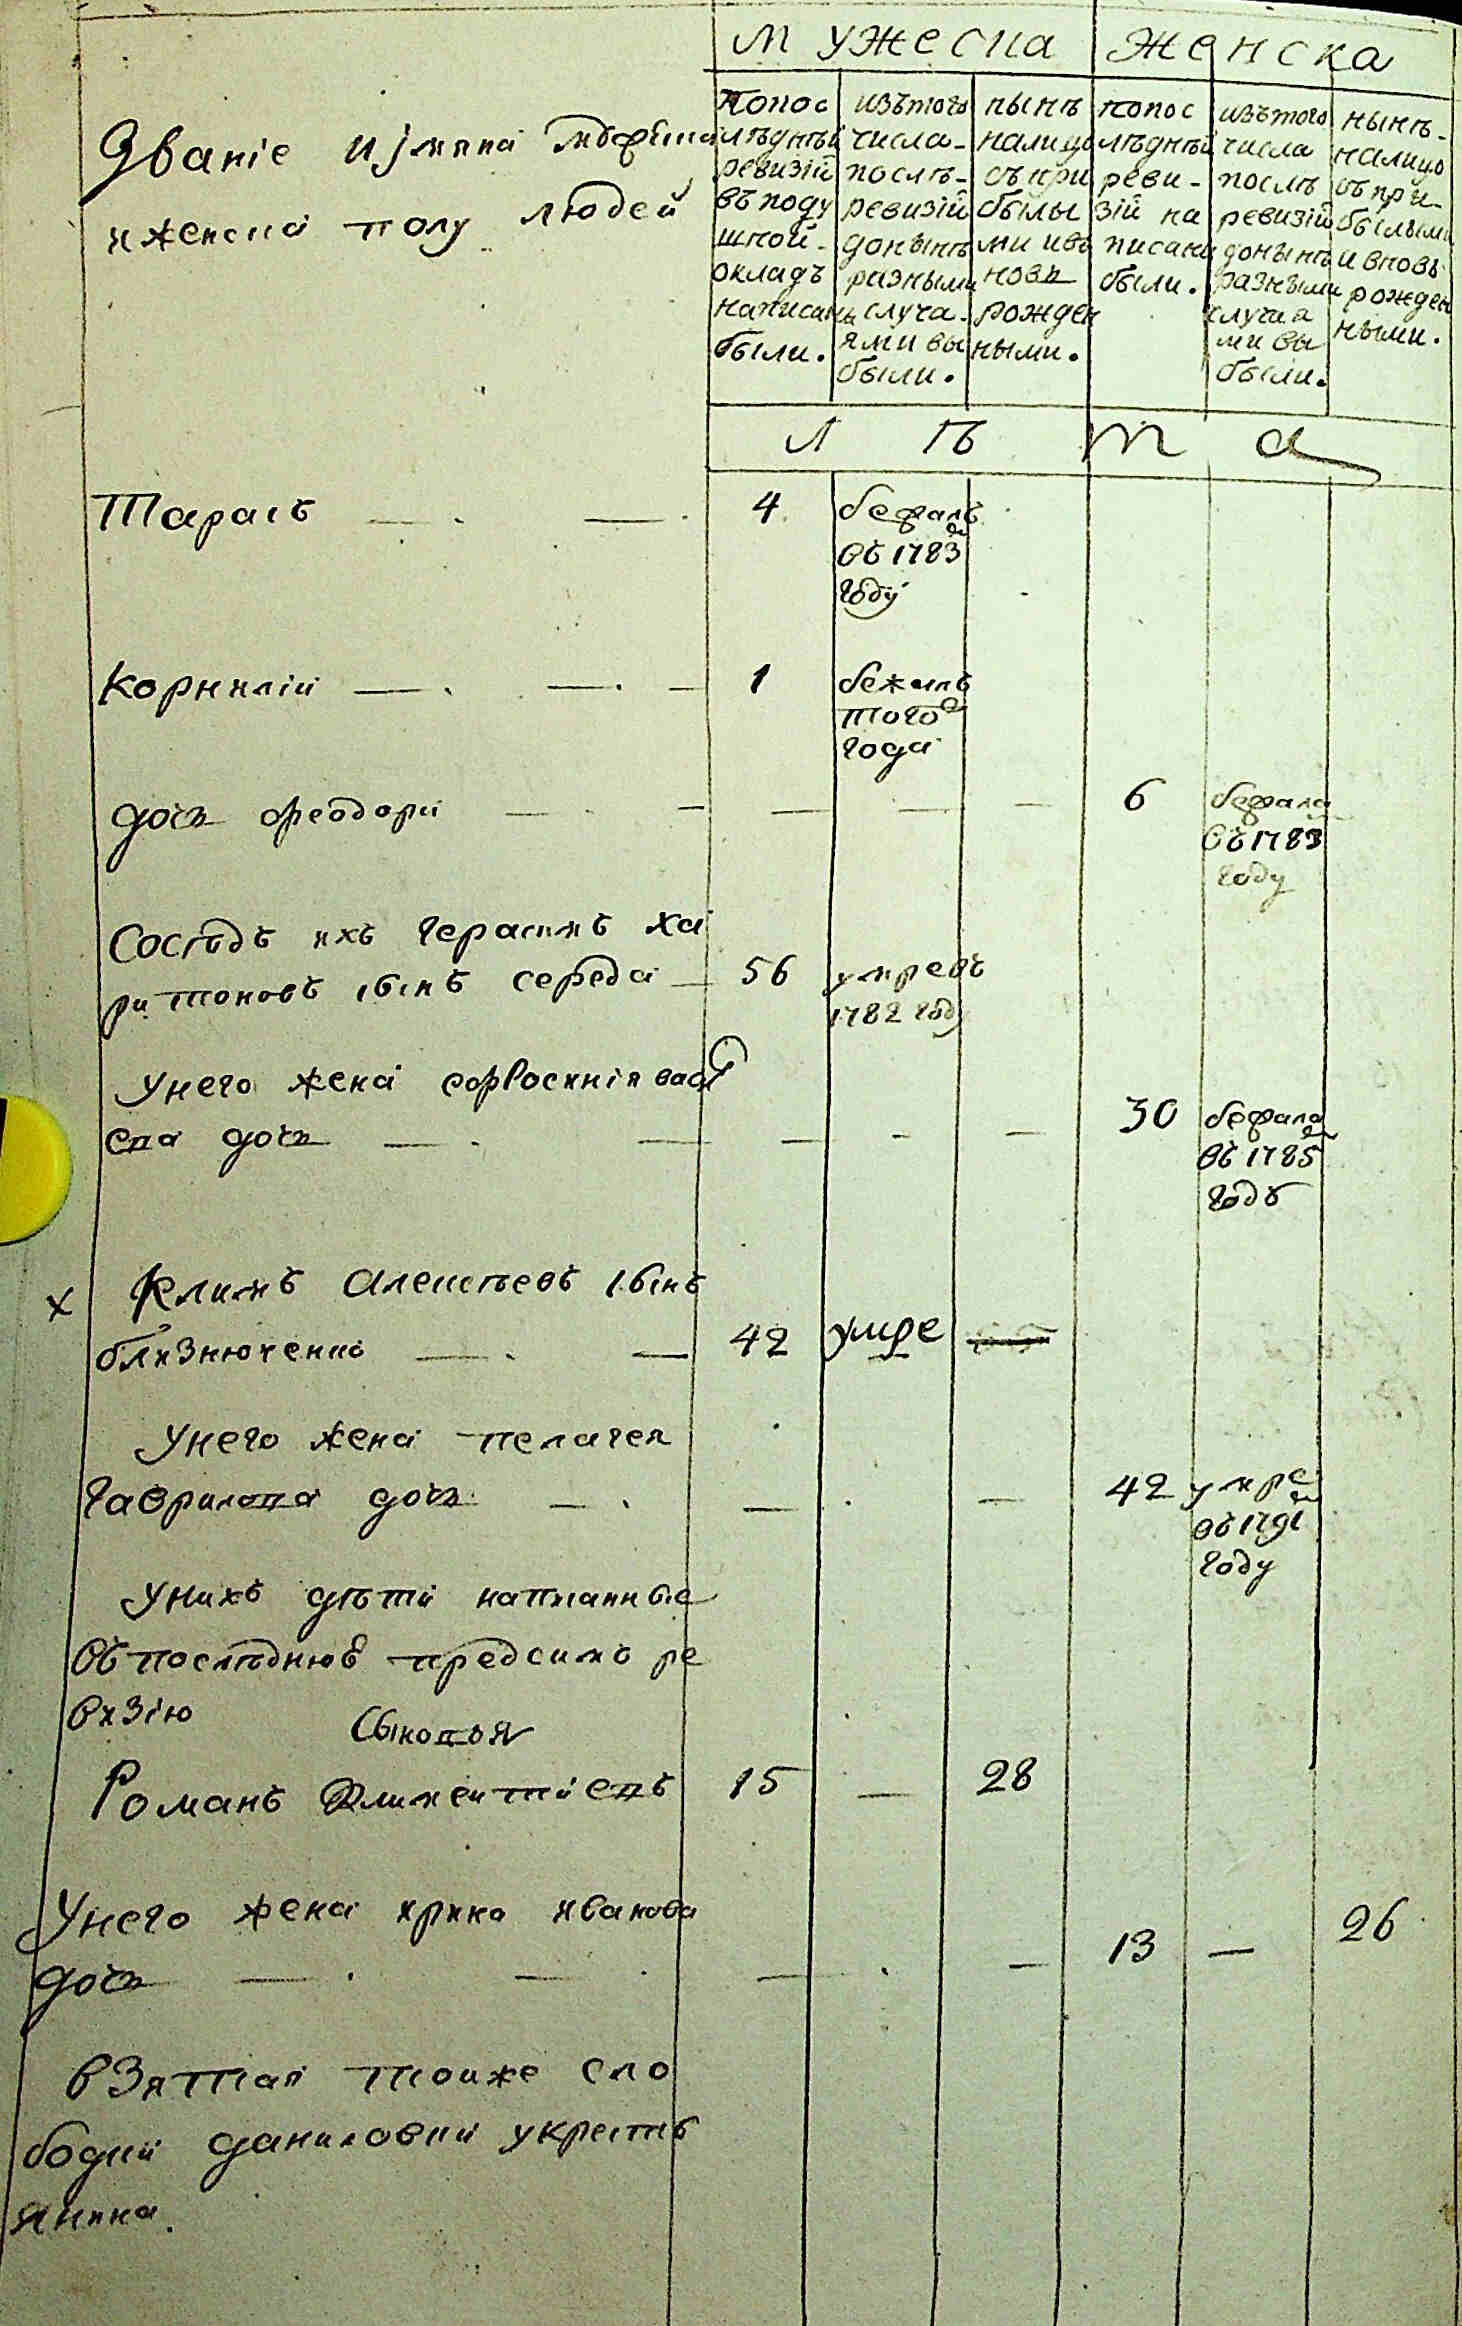 мужеска женска
Званіе и имяна мужеска
и женска полу людей
Попос
лѣдней
ревизіи
въ поду
шной
окладъ
написаны
были.
изътого
числа
послѣ
ревизіи
донынѣ
разными
случа-
ями вы
были.
нынѣ
налицо
съ при
былы
ми и въ
новь
рожден
ными.
попос
лѣдней
реви-
зіи на
писаны
были.
изътого
числа
послѣ
ревизіи
донынѣ
разными
случая
ми вы
были.
нынѣ-
налицо
съ при-
былыми
и вновь
рожден
ными.
Л ѣ т а
Тарасъ 4 бежалъ
въ 1783
году
Корнилій 1 бежалъ
того
года
дочь феодора 6 бежала
въ 1783
году
Сосѣдъ ихъ герасимъ ха
ритоновъ сынъ середа 56 умре въ
1782 году
Унего жена евфросинія васи
ева дочь 30 бежала
въ 1785
году
х Климъ Алексѣевъ сынъ
близнюченко 42 умре
Унего жена пелагея
гаврилова дочь 42 умре
въ 1791
году
Унихъ дѣти написанные
въ последнюю предсимъ ре
визію
Сыновья
Романъ Климентіевъ 15 — 28
Унего жена ирина иванова
дочь 13 — 26
взятая тоиже сло
бодки даниловки у крестъ
янина.